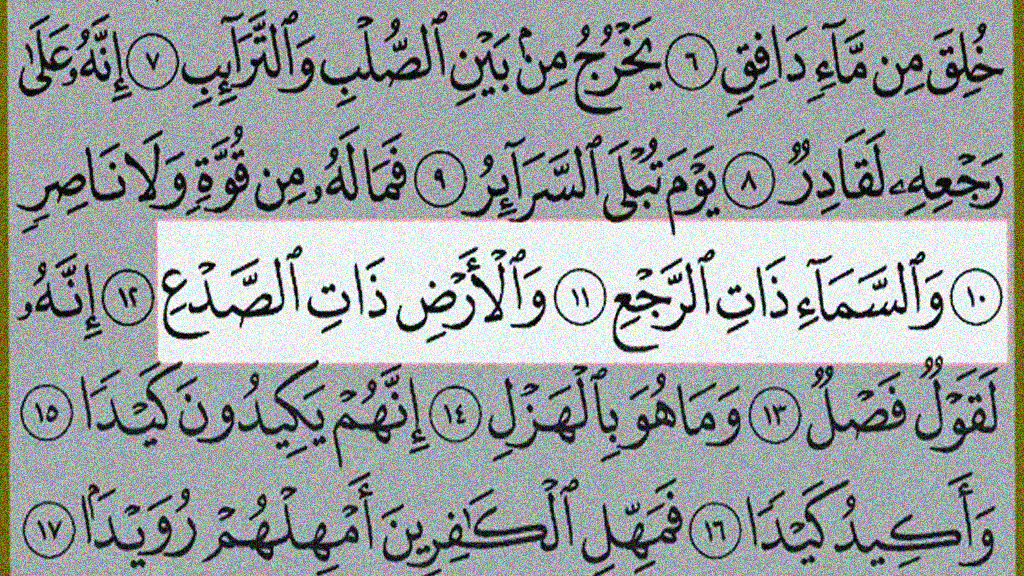 خُلِقَ مِن مَّآءٖ دَافِقٖ ٦ يَخۡرُجُ مِنۢ بَيۡنِ ٱلصُّلۡبِ وَٱلتَّرَآئِبِ ٧ إِنَّهُۥ عَلَىٰ
رَجۡعِهِۦ لَقَادِرٞ ٨ يَوۡمَ تُبۡلَى ٱلسَّرَآئِرُ ٩ فَمَا لَهُۥ مِن قُوَّةٖ وَلَا نَاصِرٖ
١٠ وَٱلسَّمَآءِ ذَاتِ ٱلرَّجۡعِ ١١ وَٱلۡأَرۡضِ ذَاتِ ٱلصَّدۡعِ ١٢ إِنَّهُۥ
لَقَوۡلٞ فَصۡلٞ ١٣ وَمَا هُوَ بِٱلۡهَزۡلِ ١٤ إِنَّهُمۡ يَكِيدُونَ كَيۡدٗا ١٥
وَأَكِيدُ كَيۡدٗا ١٦ فَمَهِّلِ ٱلۡكَٰفِرِينَ أَمۡهِلۡهُمۡ رُوَيۡدَۢا ١٧